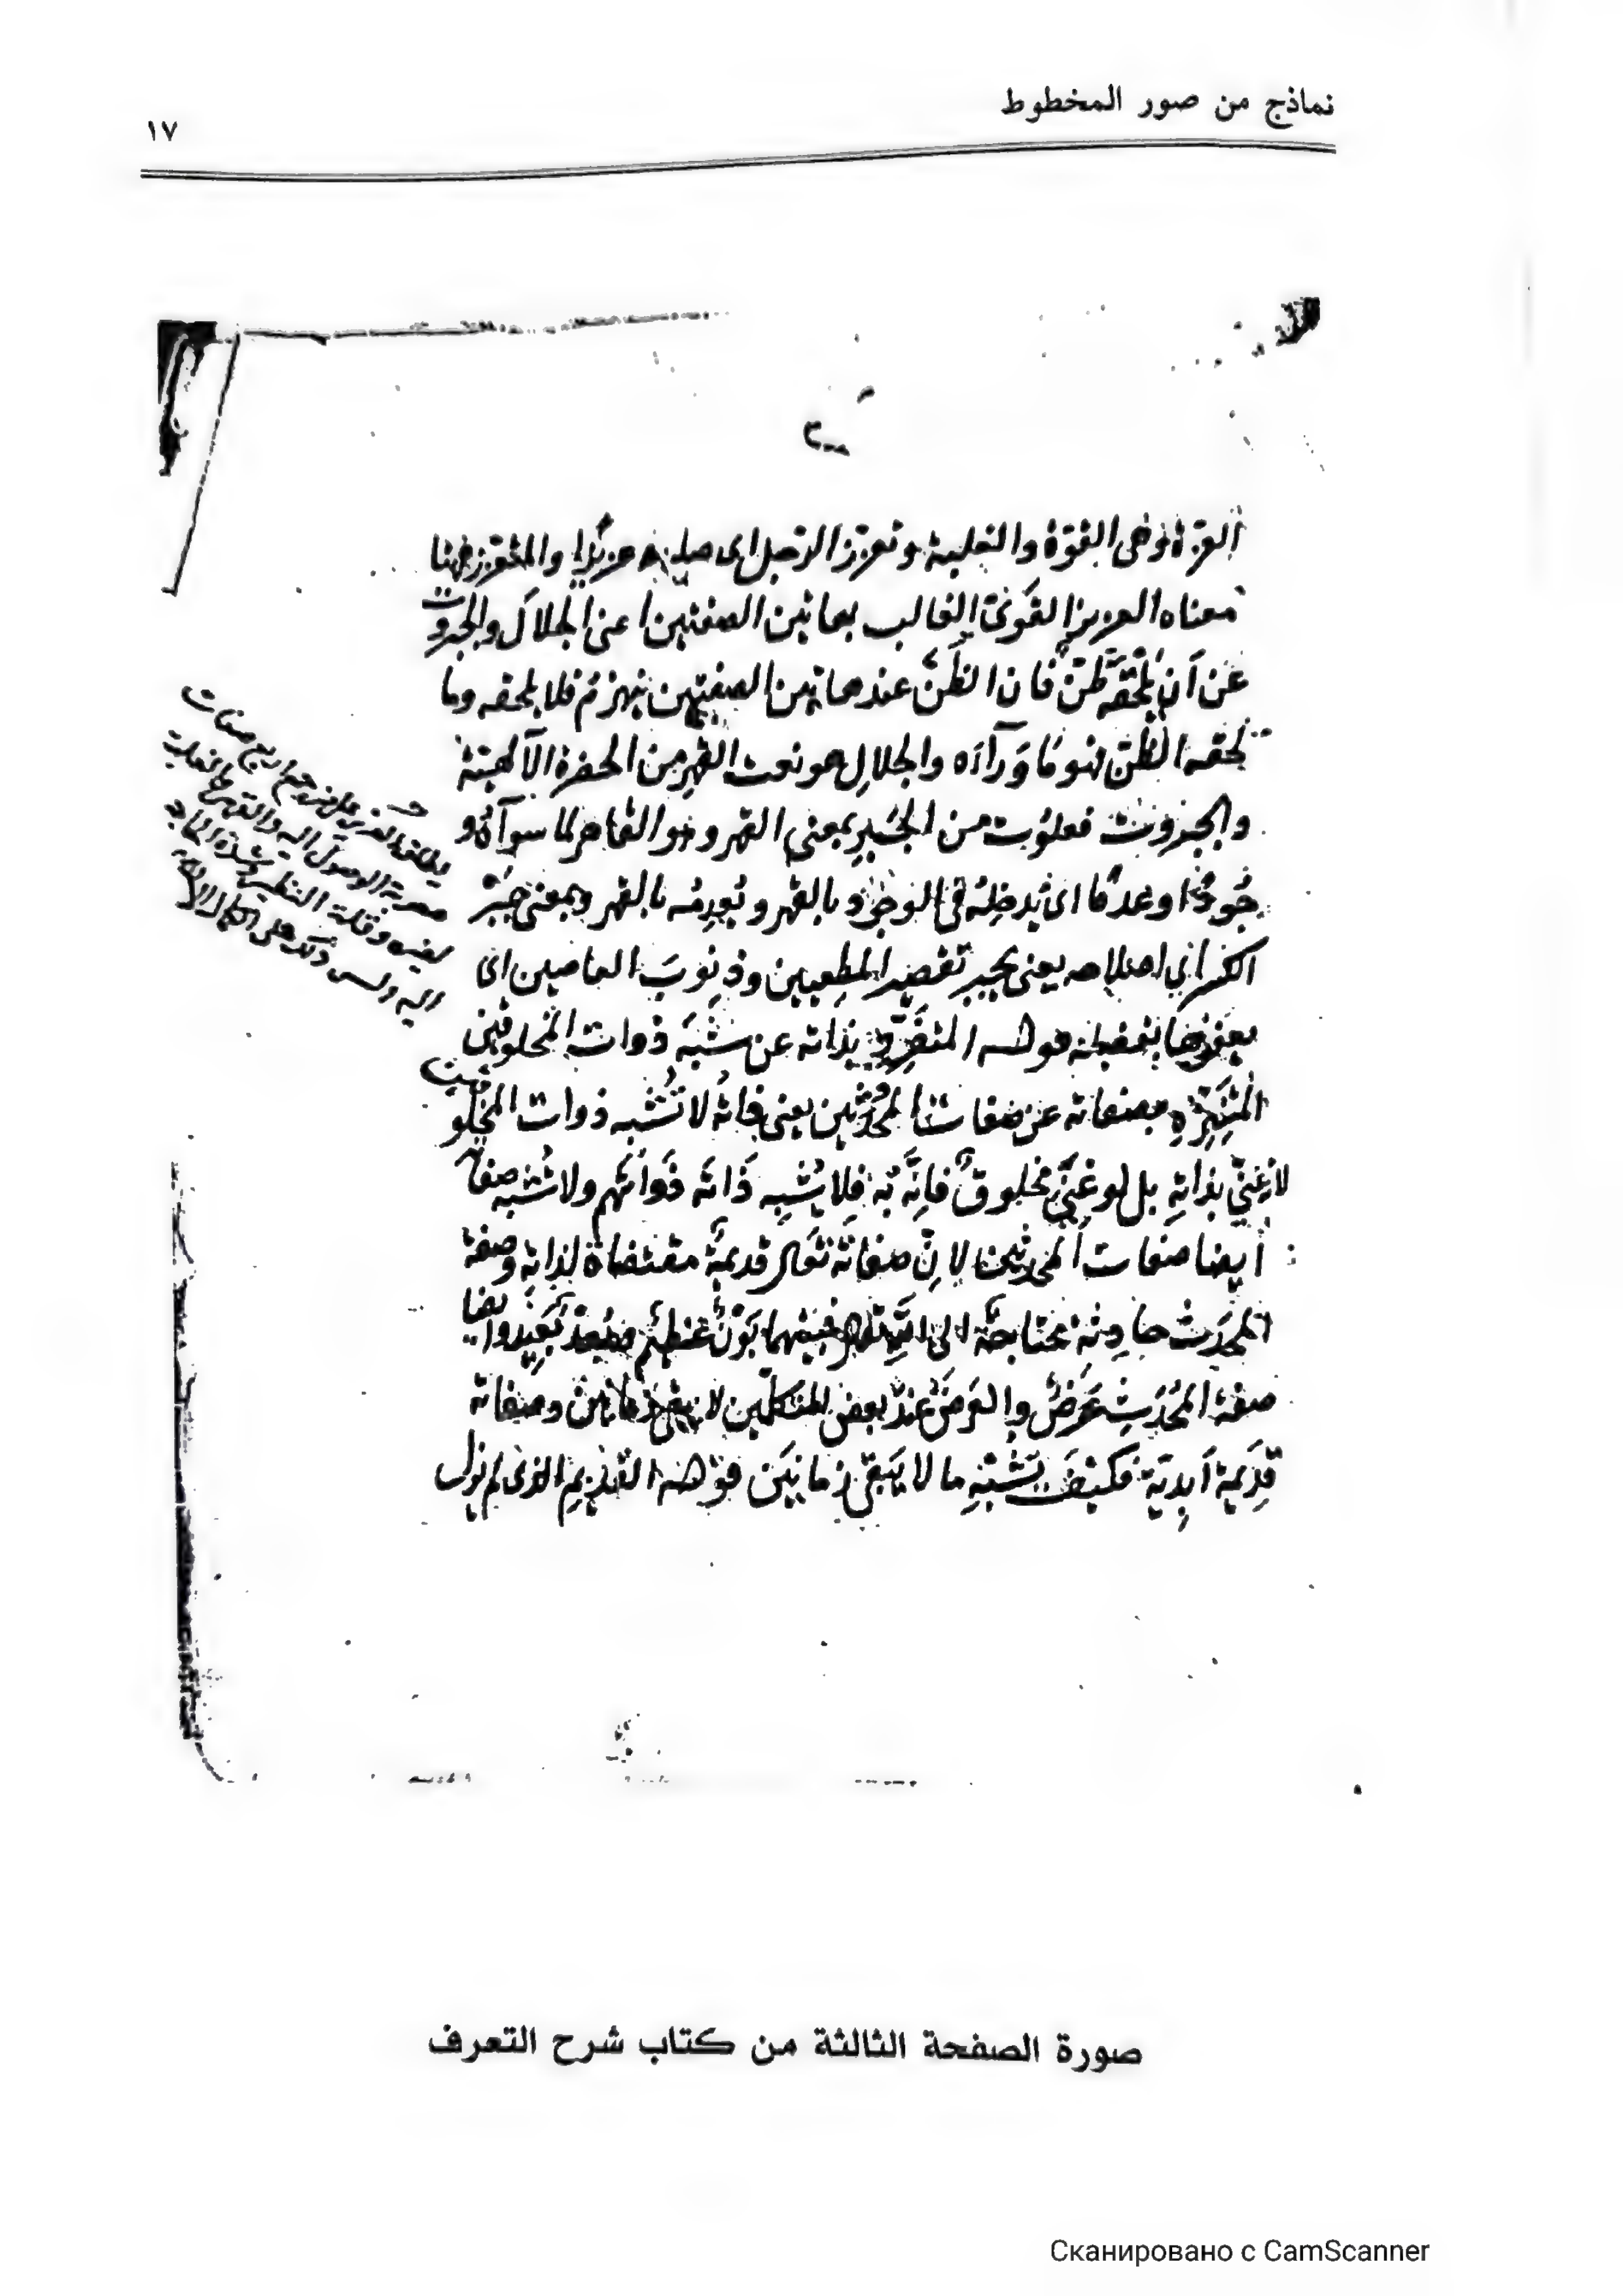 نماذج من صور المخطوط
١٧
العزة وهى القوة والغلبة وتعزز الرجل اى صار عزيزا والمتعزز ههنا
معناه العزيز القوىّ الغالب بهاتين الصفتين اعنى الجلال والجبروت
عن أن يلحقه ظنّ فان الظنّ عند هاتين الصفتين ينهزم فلا يلحقه وما
لحقه الظنّ فهو مَا وَرآاءَه والجلال هو نعت القهر من الحضرة الآلهيّة
والجبروت فعلوت من الجَبر بمعنى القهر وهو القاهر لما سوآهُ و
جُودًا وعدمًا اى يُدخِلهُ فى الوجود بالقهر ويُعدِمُه بالقهر وبمعنى جَبْر
الكسر اى اصلاحه يعنى يجبر تقصير المطيعين وذنوبَ العاصين اى
يعفوها بفضله قوله المتفرّد بذاته عن شَبَه ذوات المخلوقين
المتنزّه بصفاته عن صفات المحدثين يعنى ذاتُه لا تُشبه ذوات المخلوقين
لانه غنىّ بذاتِهِ بل لو غَنِىَ مخلوقٌ فانّه به فلا يُشبِه ذَاتَه ذَواتُهم ولا تُشبه صفاته
أيضا صفات المحدثين لانّ صفاتَه تعالى قديمة مقتضاة لذاته وصفة
المحدَث حادثة محتاجة الى اللّه تعالى فبينهما بَوْنٌ عظيم وبُعدٌ بَعِيد وايضا
صفة المُحدَثِ عَرَضٌ والعَرضُ عند بعض المتكلّمين لا يبقى زمانين وصفاته
قدِيمة أبدِيّة فكيف تشبه ما لا يَبقى زمانَين قوله القديم الذى لم يزل
صورة الصفحة الثالثة من كتاب شرح التعرف
Сканировано с CamScanner